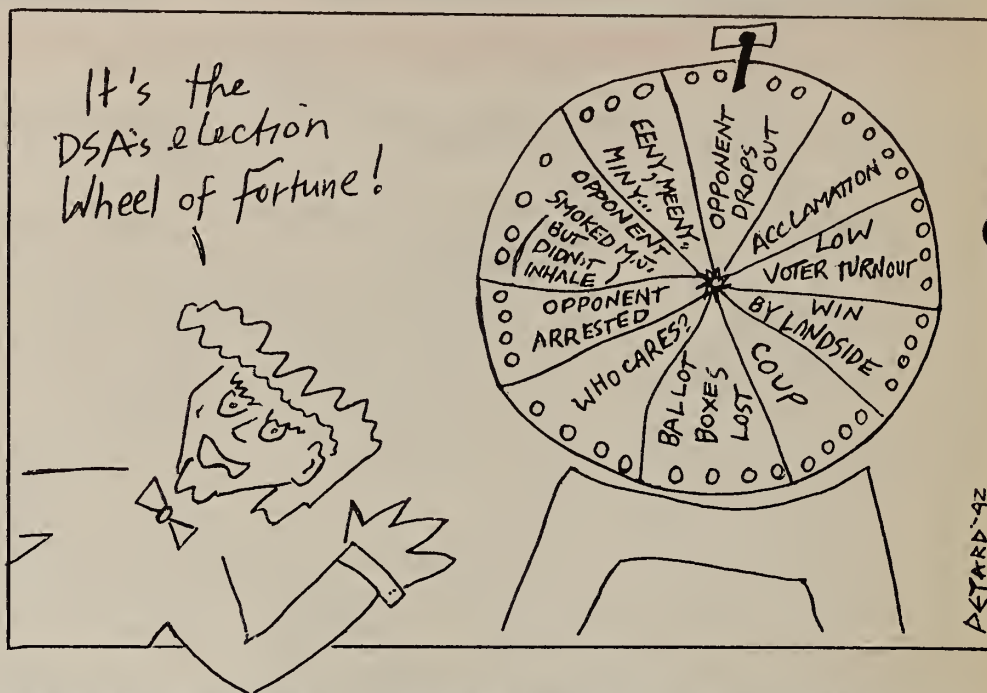 It's the
DSA's election
Wheel of fortune!
OPPONENT
DROPS
OUT
ACCLAMATION
LOW
VOTER TURNOUT
WIN
BY LANDSIDE
COUP
BALLOT
BOXES
LOST
WHO CARES?
OPPONENT
ARRESTED
OPPONENT
SMOKED M.J.
(BUT
DIDN'T
INHALE)
EENY, MEENY,
MINY...
PETARD '92